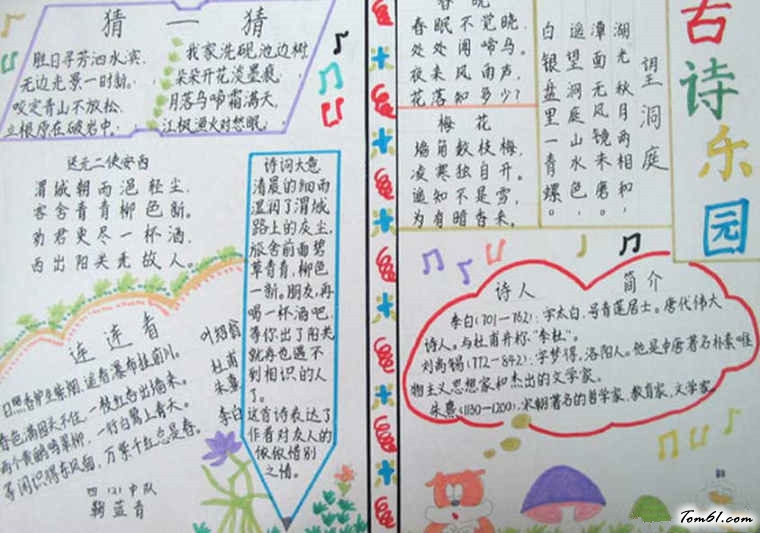 猜一猜
胜日寻芳泗水滨,
无边光景一时新。
咬定青山不放松,
立根原在破岩中。
我家洗砚池边树,
朵朵开花淡墨痕。
月落乌啼霜满天,
江枫渔火对愁眠。
送元二使安西
渭城朝雨浥轻尘,
客舍青青柳色新。
劝君更尽一杯酒,
西出阳关无故人。
诗词大意
清晨的细雨
湿润了渭城
路上的灰尘,
旅舍前面碧
草青青,柳色
一新。朋友,再
喝一杯酒吧,
等你出了阳关
就再也遇不
到相识的人
了。
这首诗表达了
作者对友人的
依依惜别
之情。
连连看
日照香炉生紫烟,遥看瀑布挂前川。
春色满园关不住,一枝红杏出墙来。
两个黄鹂鸣翠柳,一行白鹭上青天。
等闲识得东风面,万紫千红总是春。
叶绍翁
杜甫
朱熹
李白
四(2)中队
春晓
春眠不觉晓,
处处闻啼鸟。
夜来风雨声,
花落知多少?
梅花
墙角数枝梅,
凌寒独自开。
遥知不是雪,
为有暗香来。
望洞庭
湖光秋月两相和,
潭面无风镜未磨。
遥望洞庭山水色,
白银盘里一青螺。
古诗乐园
诗人简介
李白(701—762):字太白,号青莲居士。唐代伟大
诗人。与杜甫并称“李杜”。
刘禹锡(772—842):字梦得,洛阳人。他是中唐著名朴素唯
物主义思想家和杰出的文学家。
朱熹(1130—1200):宋朝著名的哲学家、教育家、文学家
Tom61.com